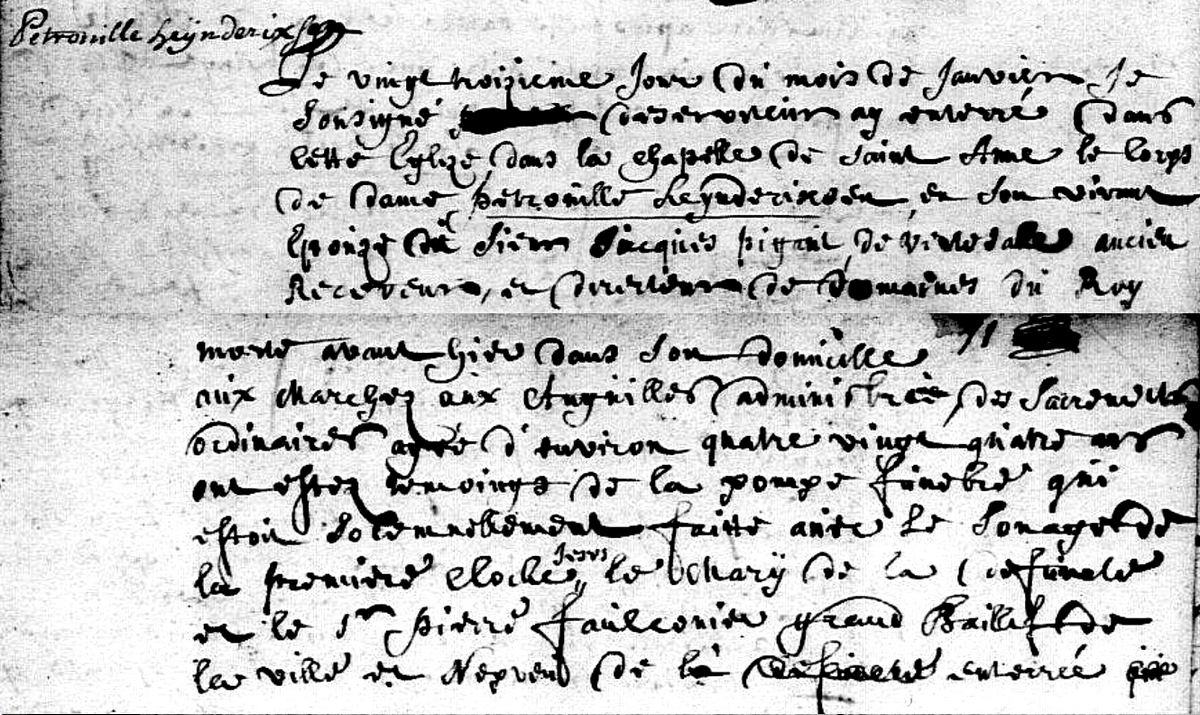 Petronille heynderixsen
Le vingt troizieme Jour du mois de Janvier Je
Sousigné deserviteur ay enterré dans
cette Eglize dans la chapelle de Saint Anne le Corps
de dame petronille heynderixsen en son vivant
Epouze du Sieur Jacques pigant de ancien
Receveur et directeur de domaines du Roy
morte avant hier dans son domicille 71
aux Marchez aux Anguilles administrée des Sacrements
ordinaires agée d'environ quatre vingt quatre ans
ont estez temoings de la pompe funebre qui
estoit solemnellement faitte avec le sonage de
la premiere cloche Jesus le Mary de la defuncte
et le Sr pierre faulconier grand Baillif de
la ville et Nepveu de la enterrée